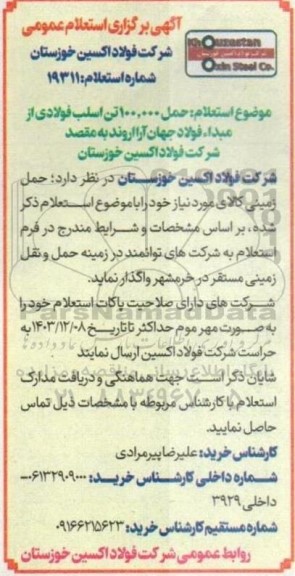 آگهی برگزاری استعلام عمومی
شرکت فولاد اکسین خوزستان
شماره استعلام: ۱۹۳۱۱
Khouzestan
Oxin Steel Co.
موضوع استعلام: حمل ۱۰۰,۰۰۰ تن اسلب فولادی از
مبداء فولاد جهان آرا اروند به مقصد
شرکت فولاد اکسین خوزستان
شرکت فولاد اکسین خوزستان در نظر دارد؛ حمل
زمینی کالای مورد نیاز خود را با موضوع استعلام ذکر
شده، بر اساس مشخصات و شرایط مندرج در فرم
استعلام به شرکت های توانمند در زمینه حمل و نقل
زمینی مستقر در خرمشهر واگذار نماید.
شرکت های دارای صلاحیت پاکات استعلام خود را
به صورت مهر موم حداکثر تا تاریخ ۱۴۰۳/۱۲/۰۸ به
حراست شرکت فولاد اکسین ارسال نمایند
شایان ذکر است جهت هماهنگی و دریافت مدارک
استعلام با کارشناس مربوطه با مشخصات ذیل تماس
حاصل نمایید.
کارشناس خرید: علیرضا پیرمرادی
شماره داخلی کارشناس خرید: ۰۶۱۳۲۹۰۹۰۰۰-
داخلی ۳۹۲۹
شماره مستقیم کارشناس خرید: ۰۹۱۶۶۲۱۵۶۲۳
روابط عمومی شرکت فولاد اکسین خوزستان
ParsNamadData